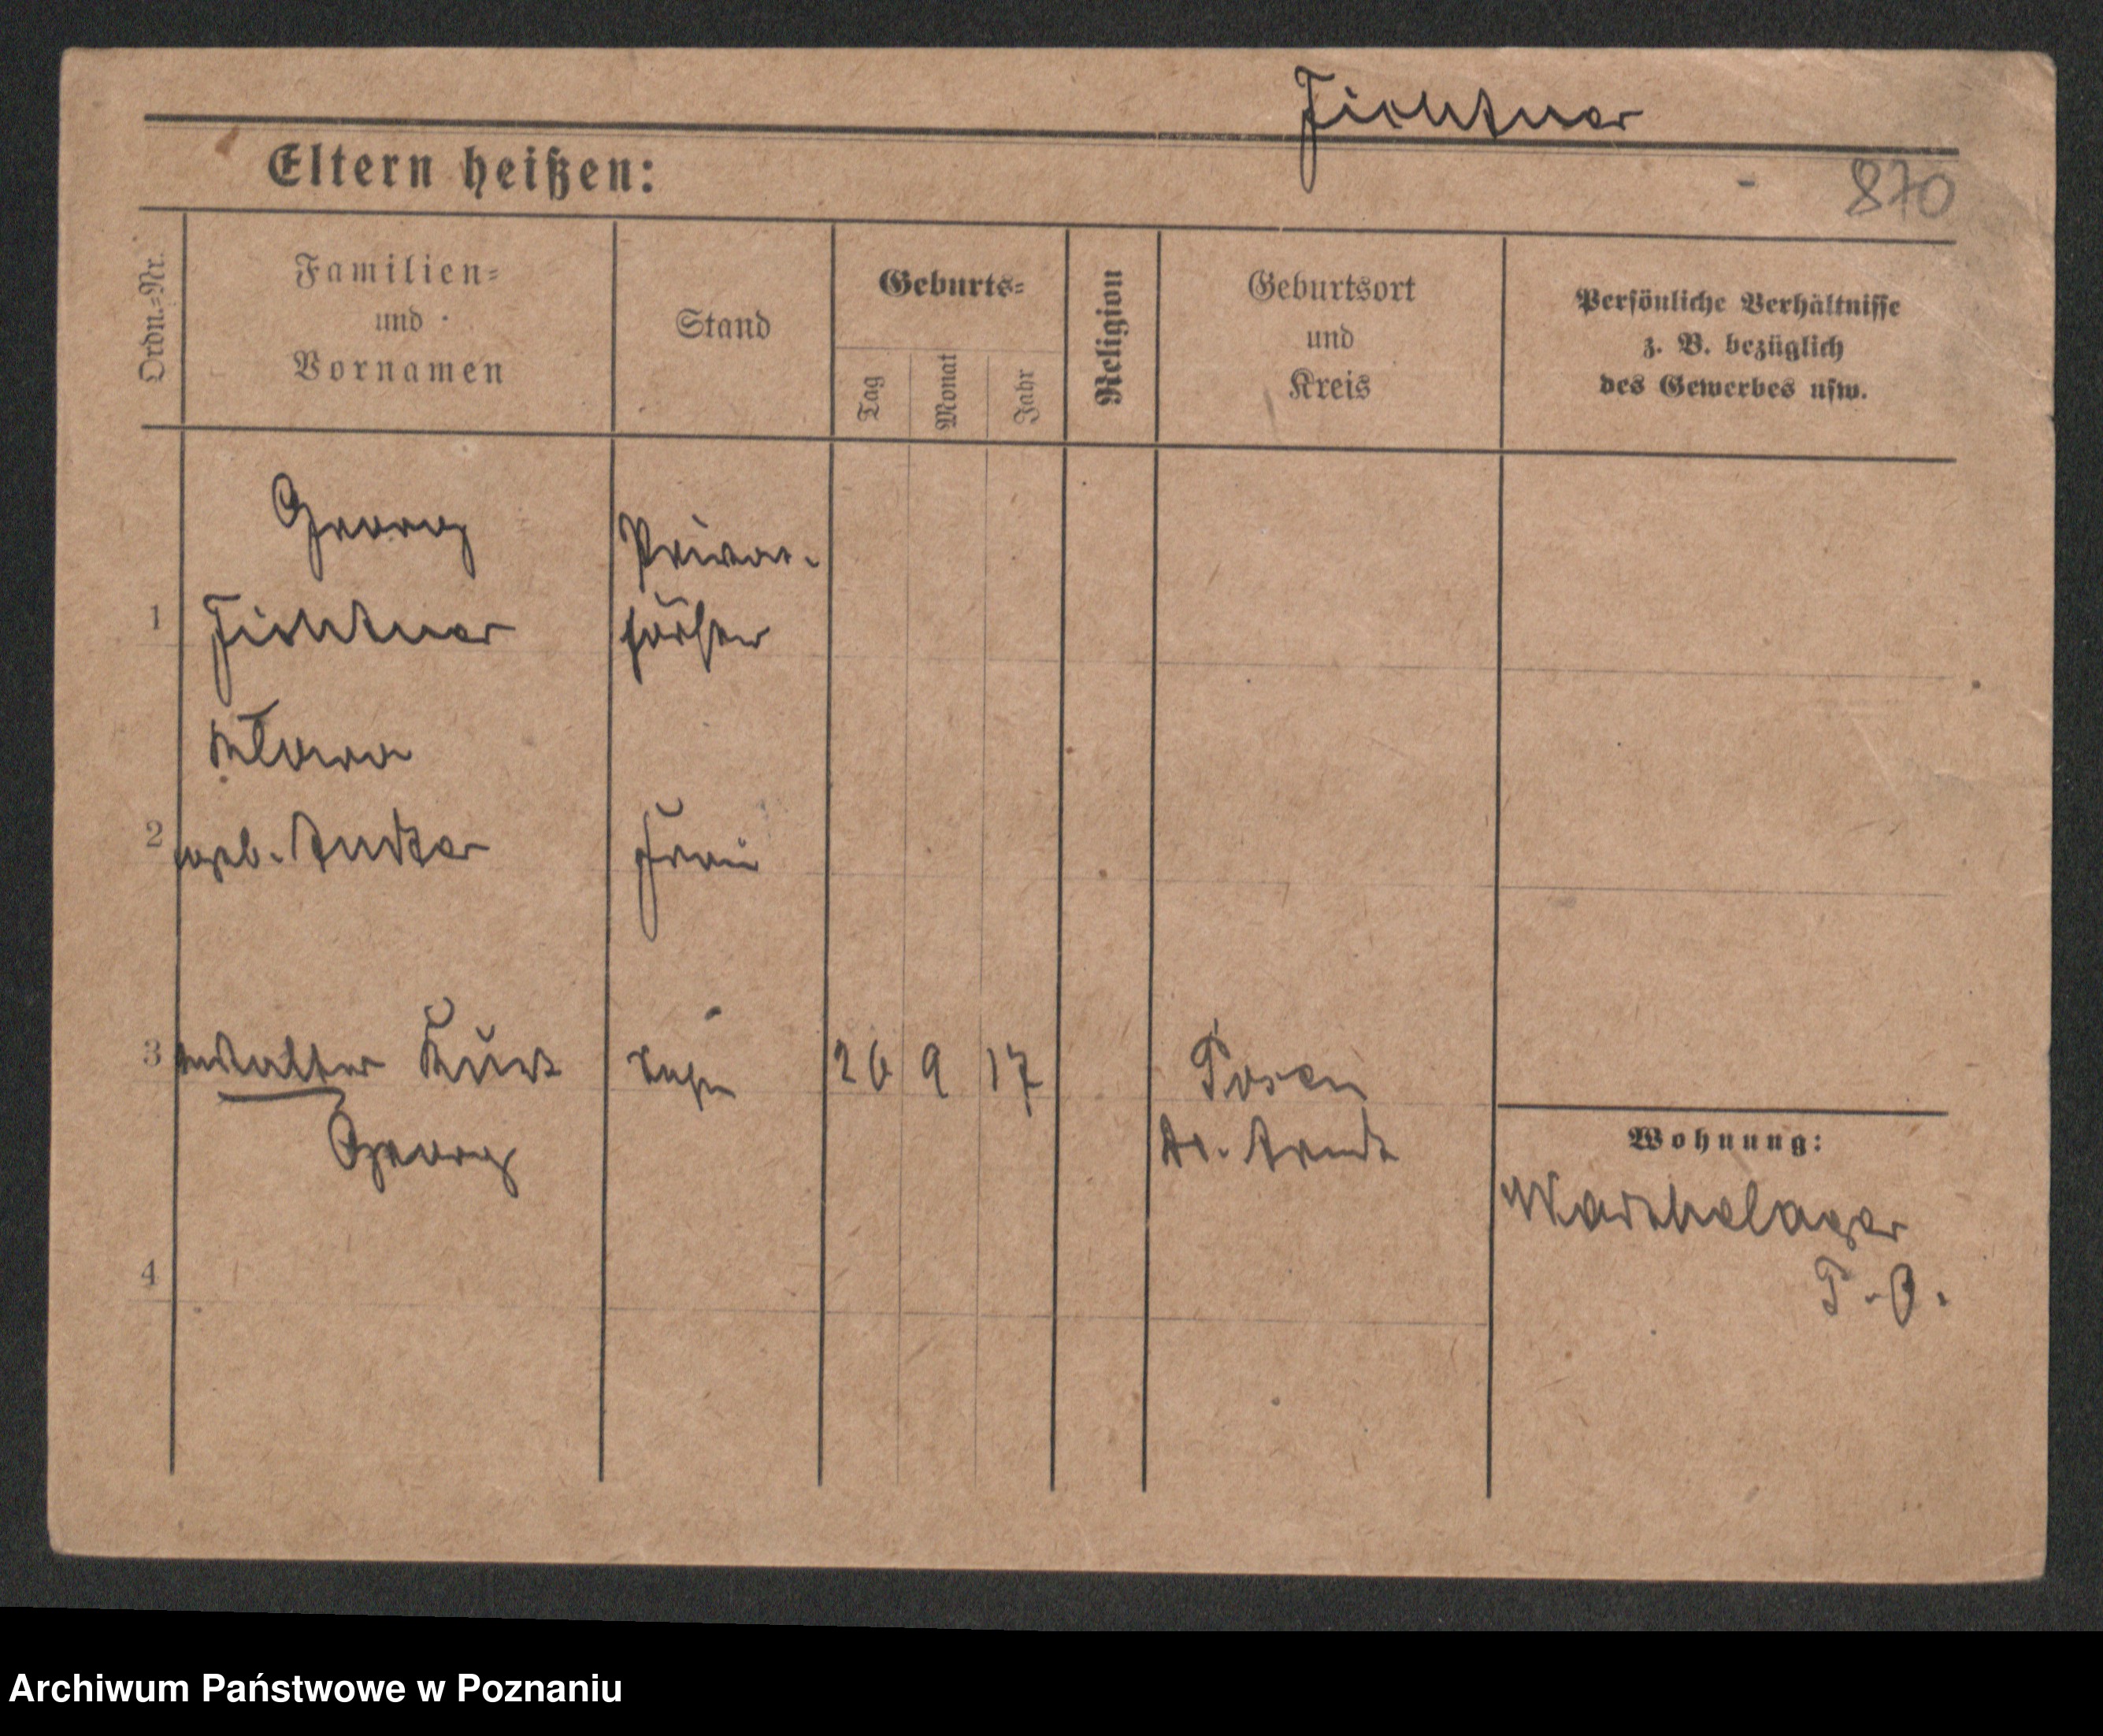 Fichtner
Eltern heißen:
870
Ordn.=Nr.
Familien=
und
Vornamen
Stand
Geburts=
Tag
Monat
Jahr
Religion
Geburtsort
und
Kreis
Persönliche Verhältnisse
z. B. bezüglich
des Gewerbes usw.
Georg
Privat-
1
Fichtner
förster
Klara
2
geb.
Frau
3
Walter Kurt
Sohn
26 9 17
Posen
Georg
Dr. Arndt
Wohnung:
Warthelager
P.-O.
4
Archiwum Państwowe w Poznaniu